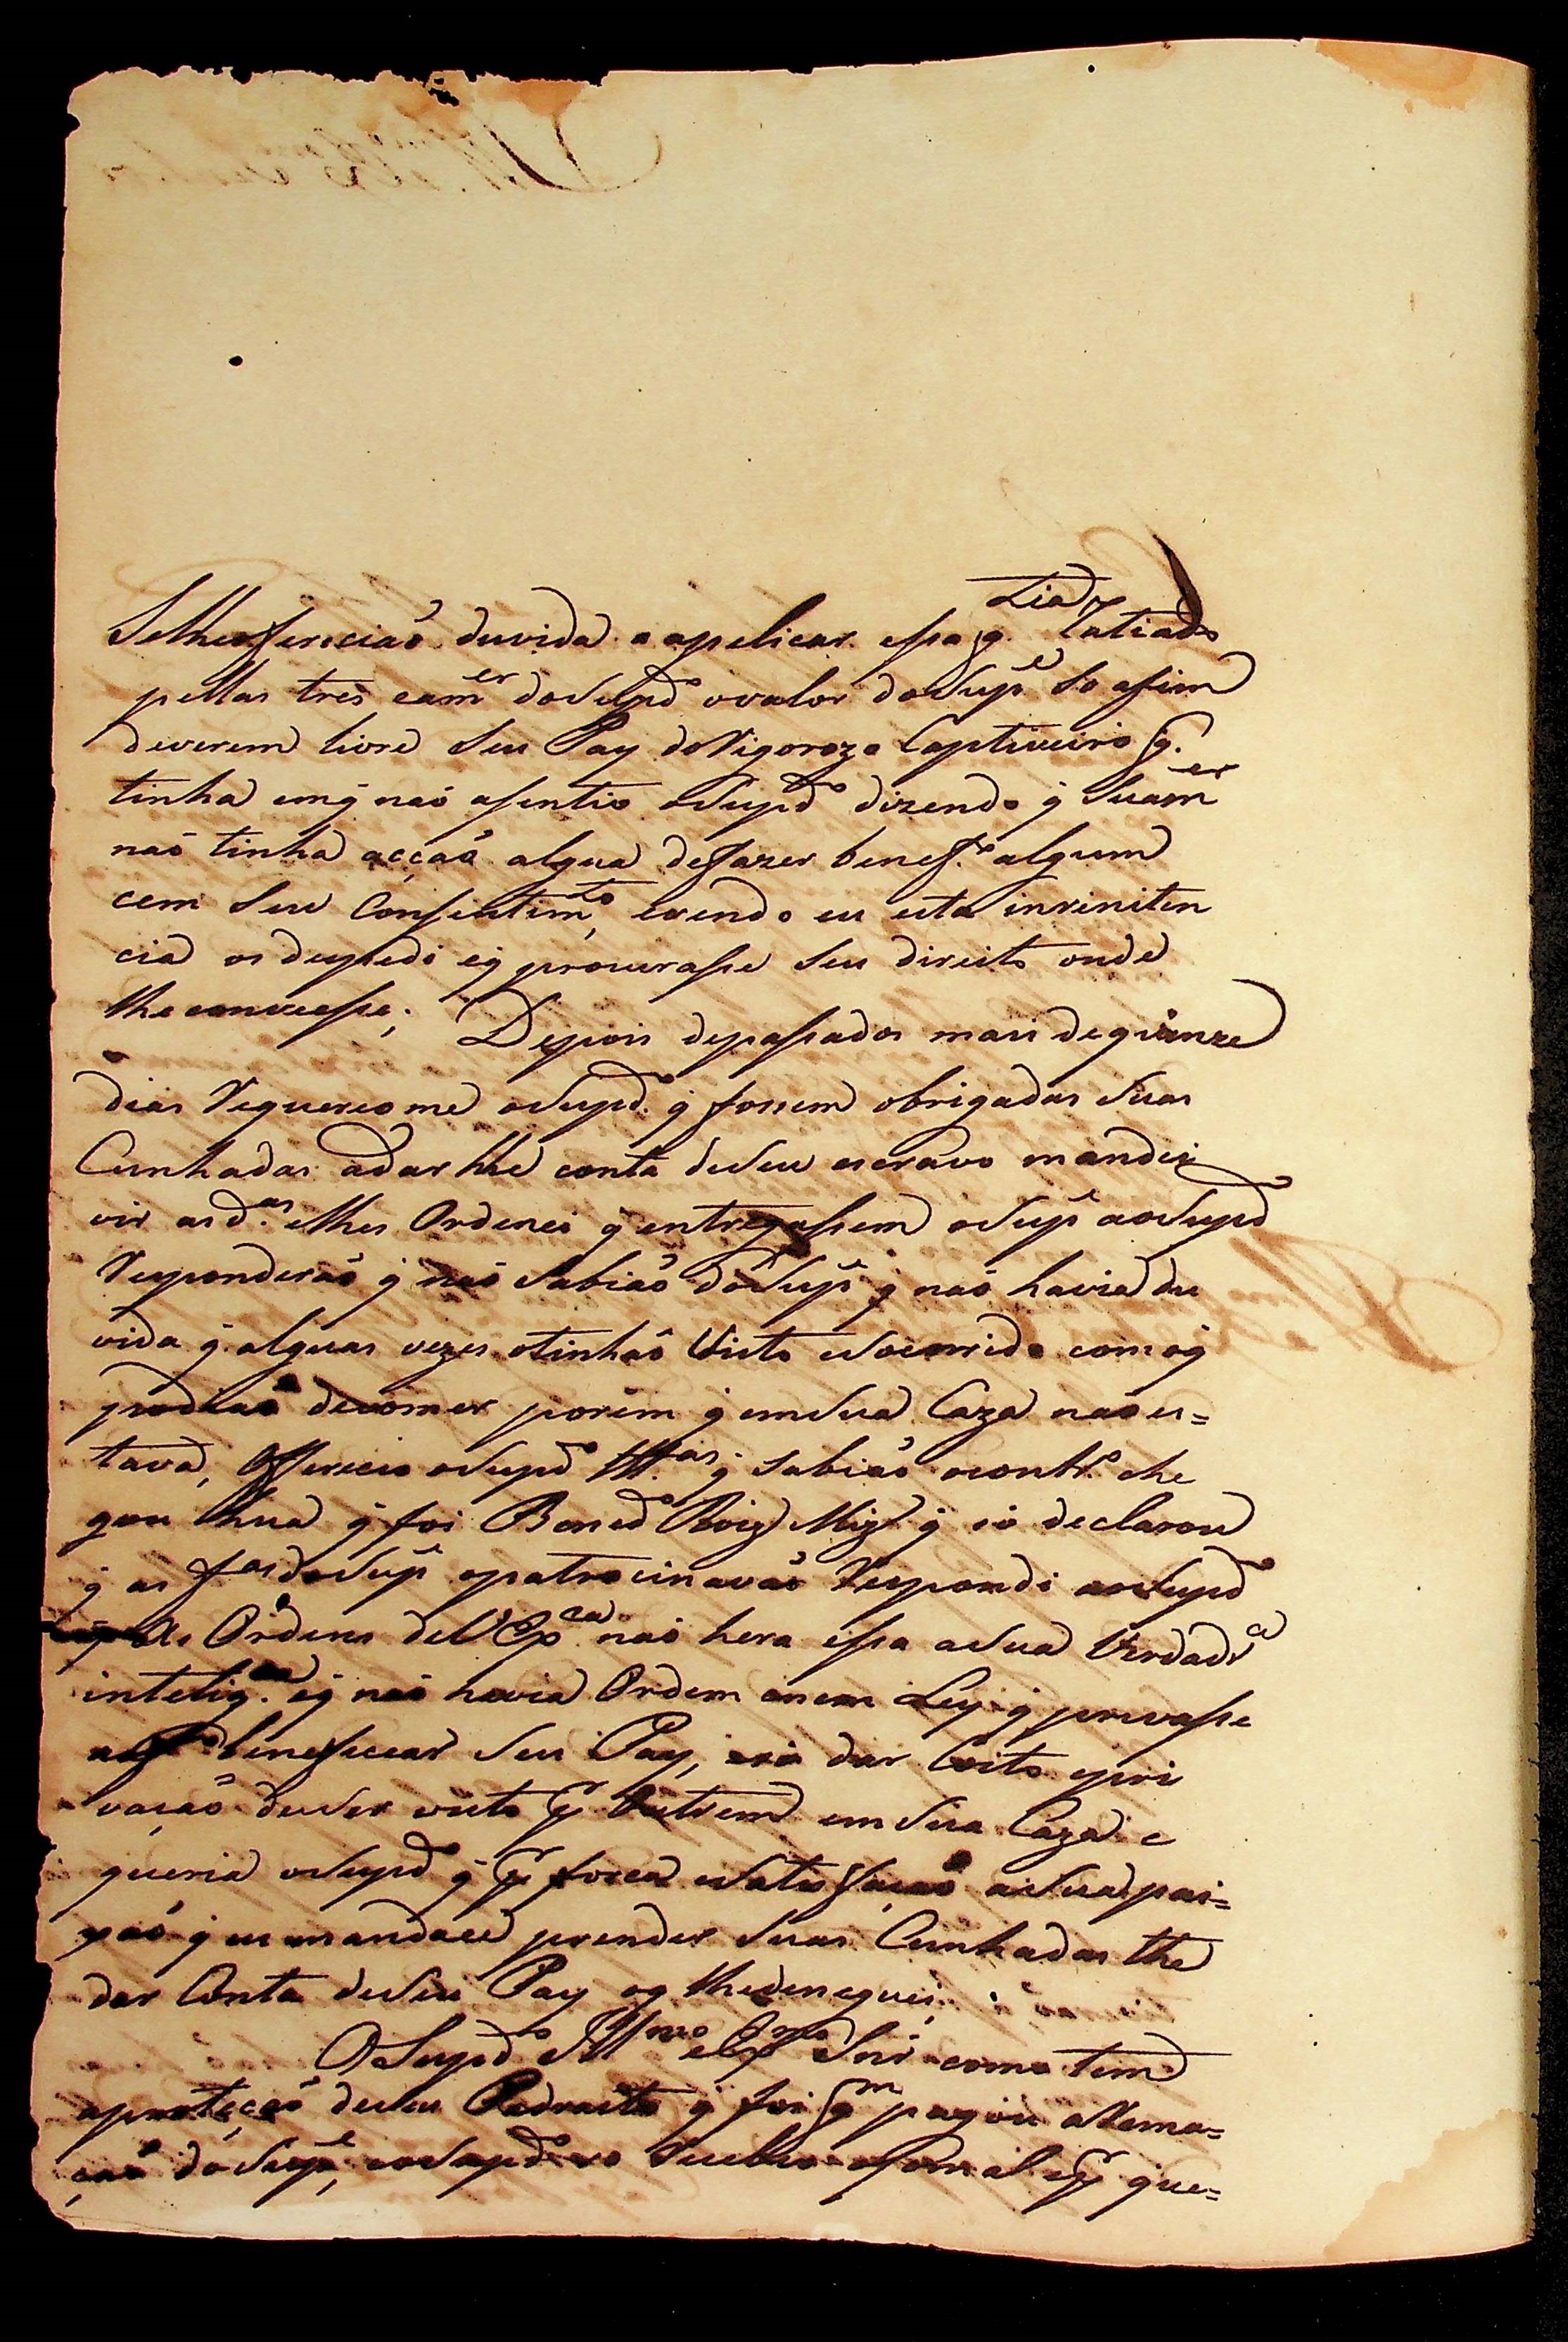 duvida a apelicar essa q.
pellas tres e a m.er do Sup.do o valor do Sup.e so afim
de verem livre Seu Pay do Rigorozo Captiveiro q.
tinha em q̃ naõ asentio o Sup.do dizendo q̃ Sua m.er
naõ tinha acçaõ algua de fazer benef.o algum
cem Seu Consentim.to, e vendo eu esta inriniten
cia os despedi e q̃ procurasse Seu direito onde
lhe conviesse; Depois de passados mais de quinze
dias Requereo me o Sup.do q̃ fossem obrigadas Suas
Cunhadas a dar lhe conta de Seu escravo mandei
vir as d.as e lhes Ordenei q̃ entregassem o Sup.e ao Sup.do
Responderaõ q̃ naõ Sabiaõ do Sup.e q̃ naõ havia du
vida q̃ alguas vezes o tinhaõ Visto e Socorrido com o q̃
podiaõ de comer porem q̃ em Sua Caza naõ es=
tava, Offereceo o Sup.do tt.as q̃ Sabiaõ o contr.o che
gou hua q̃ foi Bened.o Roiz Miz q̃ só declarou
q̃ as f.as do Sup.e o patrocinavaõ Respondi ao Sup.do
As Ordens de V Ex.ca naõ hera essa a Sua Verdadr.a
intelig.ca e q̃ naõ havia Ordem e nem Ley q̃ privasse
beneficear Seu Pay, dar Coito e pri
vaçaõ de Ser visto p.r Outrem em Sua Caza e
queria o Sup.do q̃ p.r força e Satisfaçaõ a Sua pai=
xaõ q̃ eu mandace prender Suas Cunhadas the
dar Conta de Seu Pay o q̃ lhe deneguei;
O Sup.do Ill.mo e Ex.mo Snr como tem
a proteçaõ de Seu Padrasto q̃ foi q.m pagou a Rema=
çaõ do Sup.e, ao Sup.do p.r que=